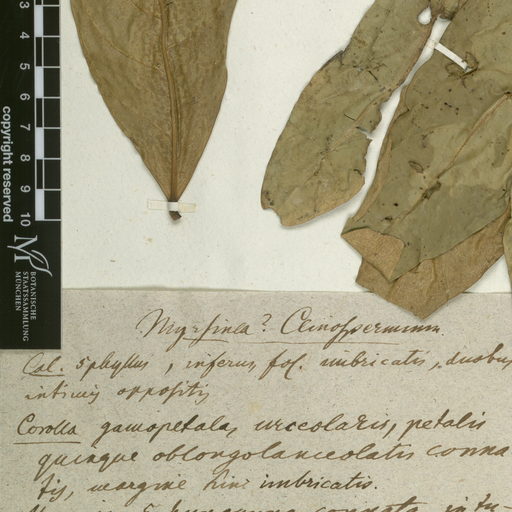 3
4
5
6
7
8
9
10
copyright reserved
BOTANISCHE
STAATSSAMMLUNG
MÜNCHEN
Myrsinea? Clinospermum.
Cal. 5phyllus, inferus, fol. imbricatis, duobus
intimis oppositis
Corolla gamopetala, urceolaris, petalis
quinque oblongolanceolatis conna
tis, margine imbricatis.
5 connata